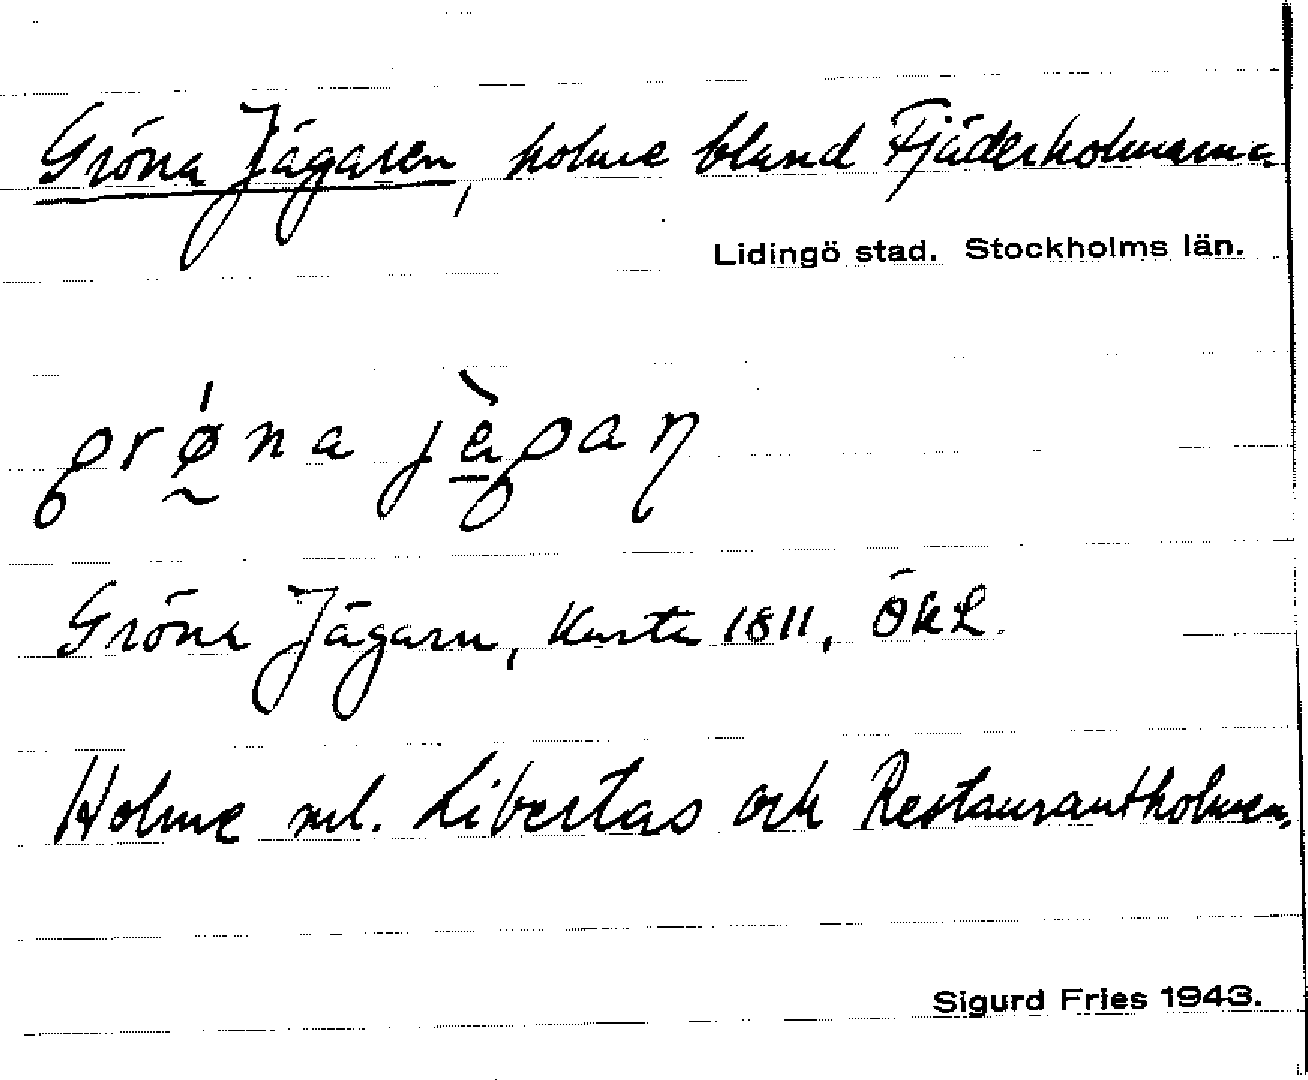 Gröna Jägaren, holme bland Fjäderholmarna
Lidingö stad. Stockholms län.
grǿ̰na jä̀gaṇ
Gröna Jägarn, Karta 1811, ÖKL.
Holme ml. Libertas och Restaurantholmen.
Sigurd Fries 1943.